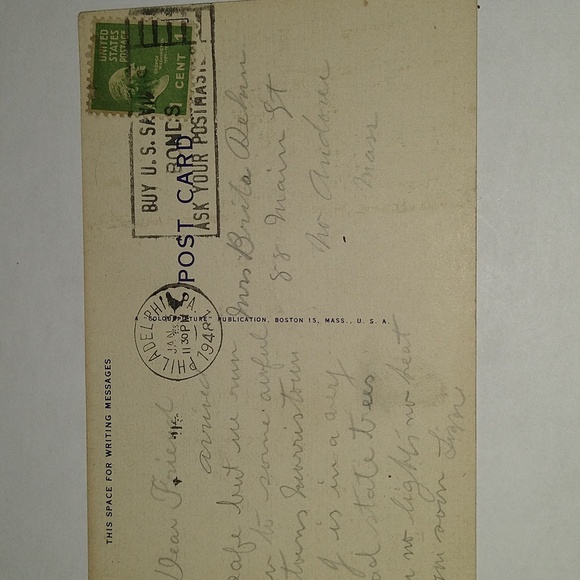 UNITED
STATES
POSTAGE
CENT 1
BUY U.S. SAVINGS
BONDS
ASK YOUR POSTMASTER
POST CARD
PHILADELPHIA, PA.
JAN
11 30 PM
194
A "COLOURPICTURE" PUBLICATION, BOSTON 15, MASS., U. S. A.
THIS SPACE FOR WRITING MESSAGES
Mrs Brita
88 Main St
No Andover
Mass
Dear Friend
arrived
safe but we run
to some awful
Morristown
is in a very
state trees
no lights no heat
soon